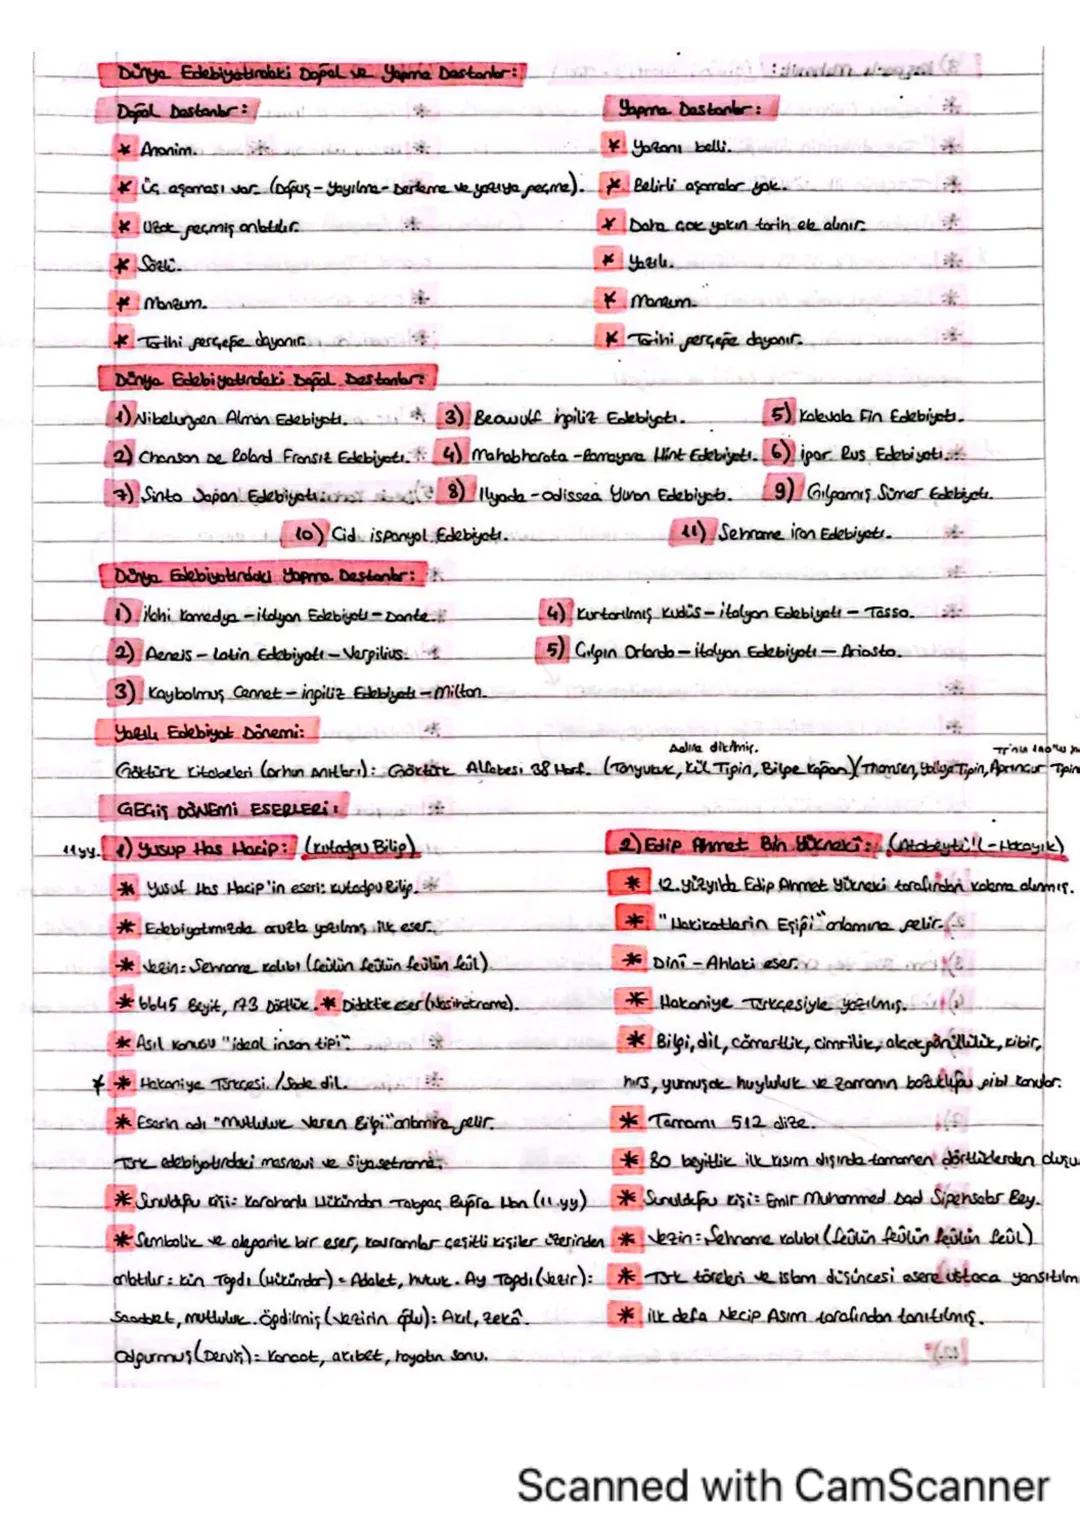 Dünya Edebiyatındaki Doğal ve Yapma Destanlar:
Doğal Destanlar:
Yapma Destanlar:
* Anonim.
* Yazanı belli.
* Üç aşaması var. (Doğuş-Yayılma-Derleme ve yazıya geçme).
* Belirli aşamalar yok.
* Uzak geçmiş anlatılır.
* Daha çok yakın tarih ele alınır.
* Sözlü.
* Yazılı.
* Manzum.
* Manzum.
* Tarihi gerçeğe dayanır.
* Tarihi gerçeğe dayanır.
Dünya Edebiyatındaki Doğal Destanlar:
1) Nibelungen Alman Edebiyatı.
3) Beowulf İngiliz Edebiyatı.
5) Kalevala Fin Edebiyatı.
2) Chanson De Roland Fransız Edebiyatı.
4) Mahabharata -Ramayana Hint Edebiyatı.
6) İgor Rus Edebiyatı.
7) Şinto Japon Edebiyatı.
8) İlyada-Odissea Yunan Edebiyatı.
9) Gılgamış Sümer Edebiyatı.
10) Cid İspanyol Edebiyatı.
11) Şehname İran Edebiyatı.
Dünya Edebiyatındaki Yapma Destanlar:
1) İlahi Komedya - İtalyan Edebiyatı - Dante.
4) Kurtarılmış Kudüs - İtalyan Edebiyatı - Tasso.
2) Aeneis - Latin Edebiyatı - Vergilius.
5) Çılgın Orlando - İtalyan Edebiyatı - Ariosto.
3) Kaybolmuş Cennet - İngiliz Edebiyatı - Milton.
Yazılı Edebiyat Dönemi:
Adına dikilmiş.
Göktürk Kitabeleri (Orhun Anıtları): Göktürk Alfabesi 38 Harf. (Tonyukuk, Kül Tigin, Bilge Kağan)(Thomsen, Yollug Tigin, Aprınçur Tigin
GEÇİŞ DÖNEMİ ESERLERİ:
11.yy. 1) Yusup Has Hacip: (Kutadgu Bilig)
2) Edip Ahmet Bin Yükneki: (Atabeytü'l-Hakayık)
* Yusuf Has Hacip'in eseri: Kutadgu Bilig.
* 12.yüzyılda Edip Ahmet Yükneki tarafından kaleme alınmış.
* Edebiyatımızda aruzla yazılmış ilk eser.
* "Hakikatlerin Eşiği" anlamına gelir.
* Vezin: Şehname kalıbı (feûlün feûlün feûlün feûl).
* Dinî - Ahlaki eser.
* 6645 Beyit, 173 Dörtlük. * Didaktik eser (Nasihatname).
* Hakaniye Türkçesiyle yazılmış.
* Asıl konusu "ideal insan tipi".
* Bilgi, dil, cömertlik, cimrilik, alçakgönüllülük, kibir,
* * Hakaniye Türkçesi. / Sade dil.
hırs, yumuşak huyluluk ve zamanın bozukluğu gibi konular.
* Eserin adı "Mutluluk Veren Bilgi" anlamına gelir.
* Tamamı 512 dize.
Türk edebiyatındaki mesnevi ve Siyasetname.
* 80 beyitlik ilk kısım dışında tamamen dörtlüklerden oluşu
* Sunulduğu kişi: Karahanlı Hükümdarı Tabgaç Buğra Han (11.yy)
* Sunulduğu kişi: Emir Muhammed Dad Sipehsalar Bey.
* Sembolik ve alegorik bir eser, kavramlar çeşitli kişiler üzerinden
* Vezin: Şehname kalıbı (feûlün feûlün feûlün feûl)
anlatılır: Kün Togdı (Hükümdar) = Adalet, hukuk. Ay Togdı (Vezir):
* Türk töreleri ve islam düşüncesi esere ustaca yansıtılm
Saadet, mutluluk. Ögdilmiş (Vezirin oğlu): Akıl, zekâ.
* İlk defa Necip Asım tarafından tanıtılmış.
Odgurmuş (Derviş): Kanaat, akıbet, hayatın sonu.
Scanned with CamScanner